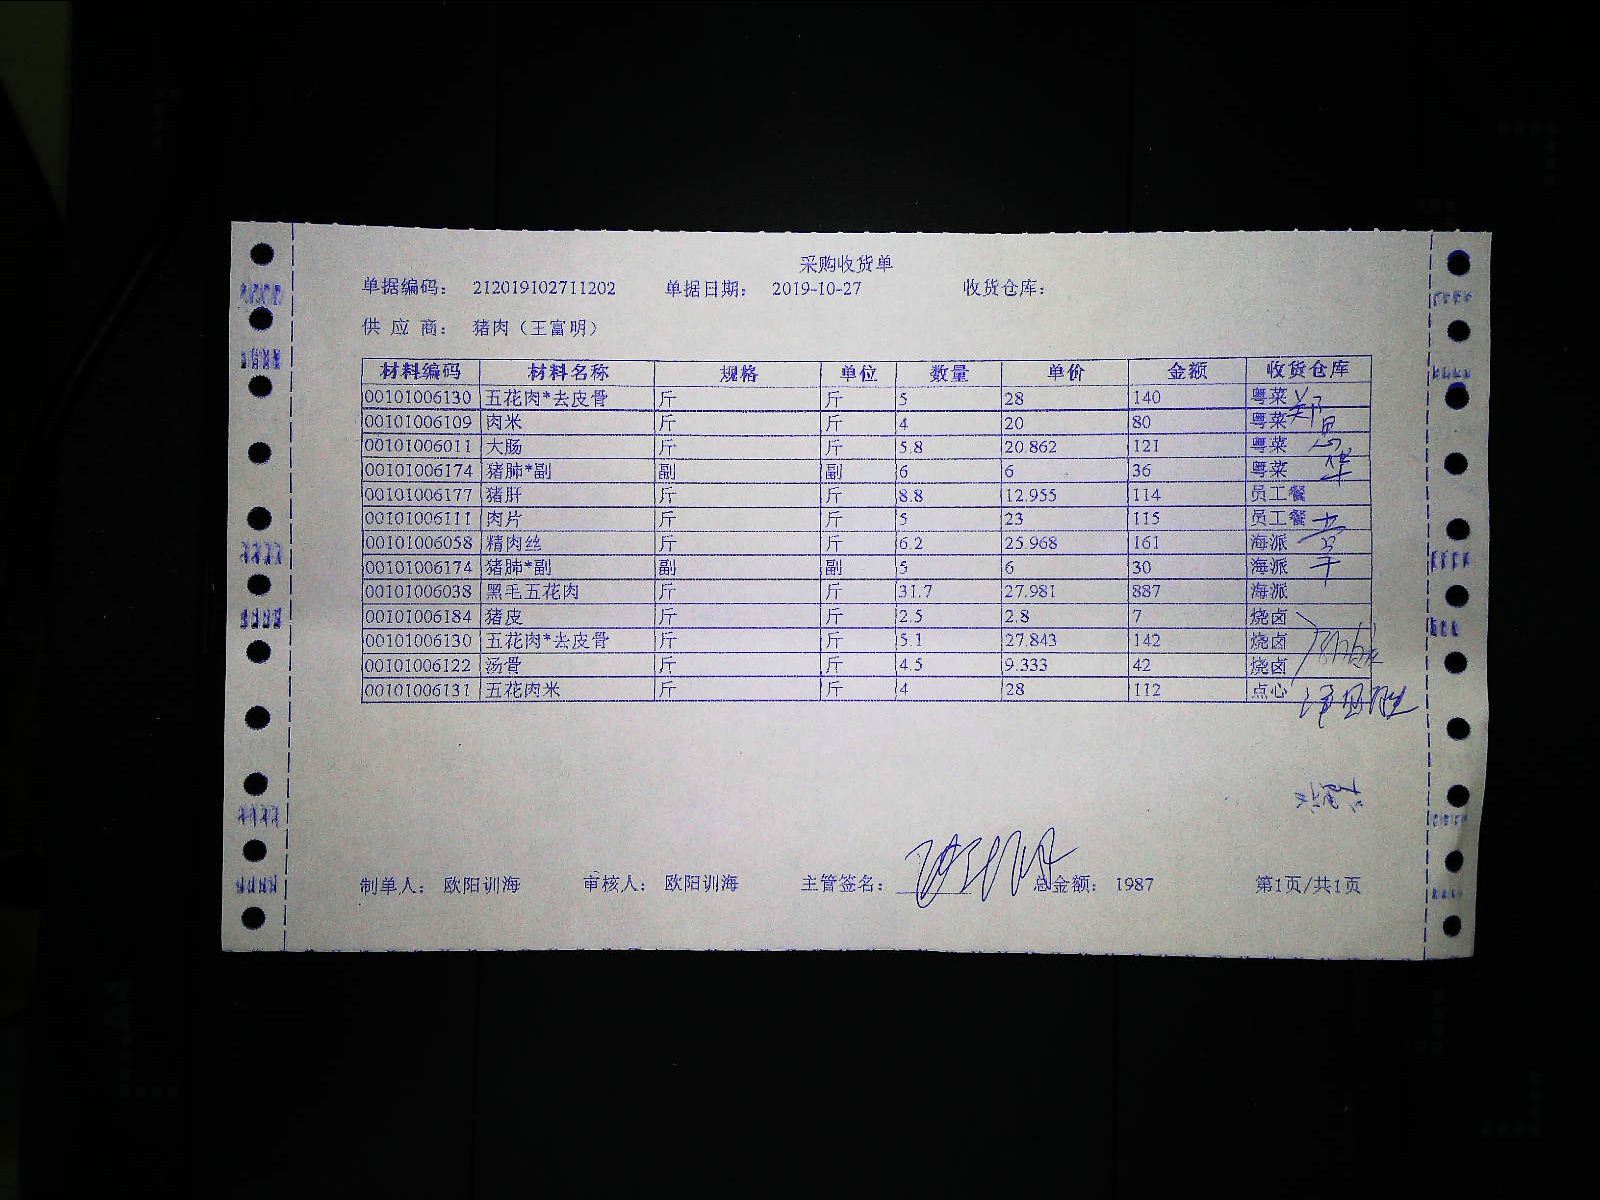 采购收货单
单据编码： 212019102711202 单据日期： 2019-10-27 收货仓库：
供 应 商： 猪肉（王富明）
材料编码 材料名称 规格 单位 数量 单价 金额 收货仓库
00101006130 五花肉*去皮骨 斤 斤 5 28 140 粤菜
00101006109 肉米 斤 斤 4 20 80 粤菜
00101006011 大肠 斤 斤 5.8 20.862 121 粤菜
00101006174 猪肺*副 副 副 6 6 36 粤菜
00101006177 猪肝 斤 斤 8.8 12.955 114 员工餐
00101006111 肉片 斤 斤 5 23 115 员工餐
00101006058 精肉丝 斤 斤 6.2 25.968 161 海派
00101006174 猪肺*副 副 副 5 6 30 海派
00101006038 黑毛五花肉 斤 斤 31.7 27.981 887 海派
00101006184 猪皮 斤 斤 2.5 2.8 7 烧卤
00101006130 五花肉*去皮骨 斤 斤 5.1 27.843 142 烧卤
00101006122 汤骨 斤 斤 4.5 9.333 42 烧卤
00101006131 五花肉米 斤 斤 4 28 112 点心
制单人： 欧阳训海 审核人： 欧阳训海 主管签名： 总金额： 1987 第1页/共1页